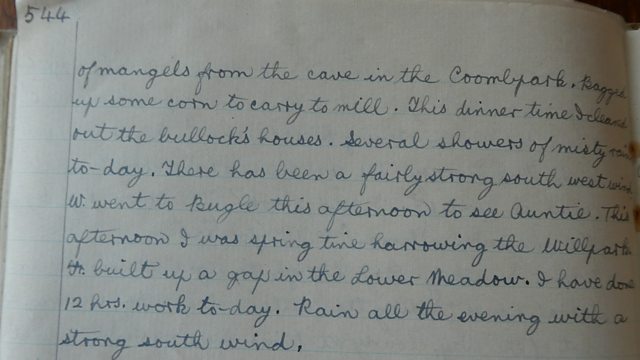 544
of mangels from the cave in the Coombpark. Bagged
up some corn to carry to mill. This dinner time I cleaned
out the bullock's houses. Several showers of misty rain
to-day. There has been a fairly strong south west wind
W. went to Bugle this afternoon to see Auntie. This
afternoon I was spring tine harrowing the Willpark.
built up a gap in the Lower Meadow. I have done
12 hrs. work to-day. Rain all the evening with a
strong south wind.